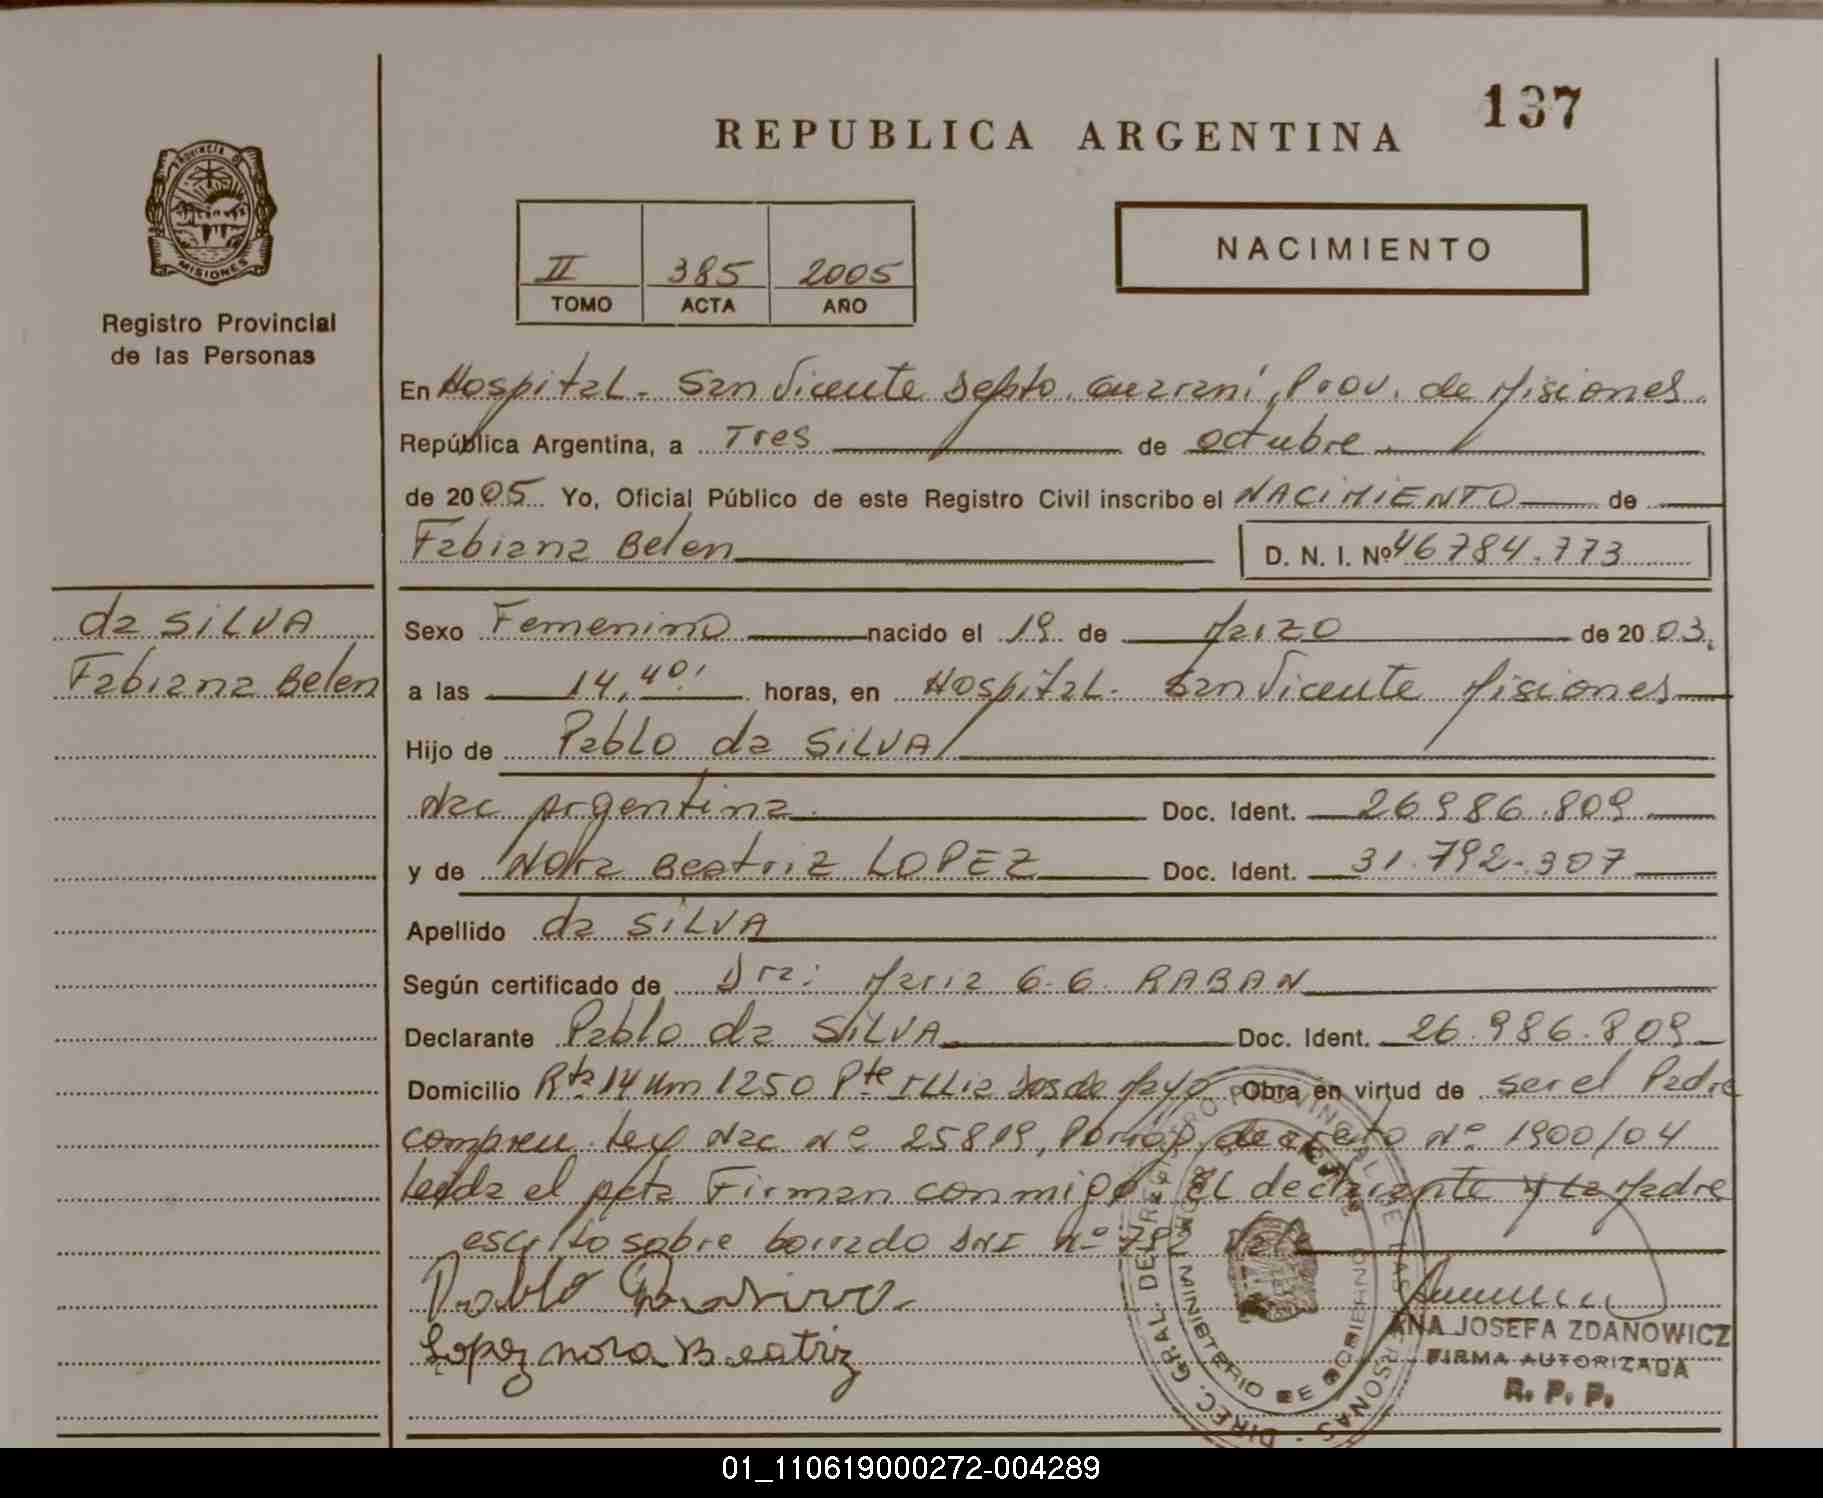 137
REPUBLICA ARGENTINA
PROVINCIA DE
MISIONES
Registro Provincial
de las Personas
II 385 2005
TOMO ACTA AÑO
NACIMIENTO
En Hospital - San Vicente Depto. Guaraní, Prov. de Misiones.
República Argentina, a Tres de octubre
de 2005 Yo, Oficial Público de este Registro Civil inscribo el NACIMIENTO de
Fabiana Belen D. N. I. Nº 46784.773
da SILVA
Fabiana Belen
Sexo Femenino nacido el 19 de Marzo de 2003.
a las 14,40' horas, en Hospital - San Vicente Misiones
Hijo de Pablo da SILVA
Nac Argentina. Doc. Ident. 26986.809
y de Nora Beatriz LOPEZ Doc. Ident. 31.792.307
Apellido da SILVA
Según certificado de Dra: Maria G. G. RABAN
Declarante Pablo da SILVA Doc. Ident. 26.986.809
Domicilio Rta 14 Km 1250 Pte Illia Dos de Mayo Obra en virtud de ser el Padre
Ley Nac Nº 25819, decreto Nº 1900/04
leida el acta Firman conmigo El declarante y la Madre
escrito sobre borrado DNI Nº 792 Vale
Pablo
Lopez Nora Beatriz
DIREC. GRAL. DE REGISTRO PROVINCIAL DE LAS PERSONAS
MINISTERIO DE GOBIERNO
ANA JOSEFA ZDANOWICZ
FIRMA AUTORIZADA
R. P. P.
01_110619000272-004289